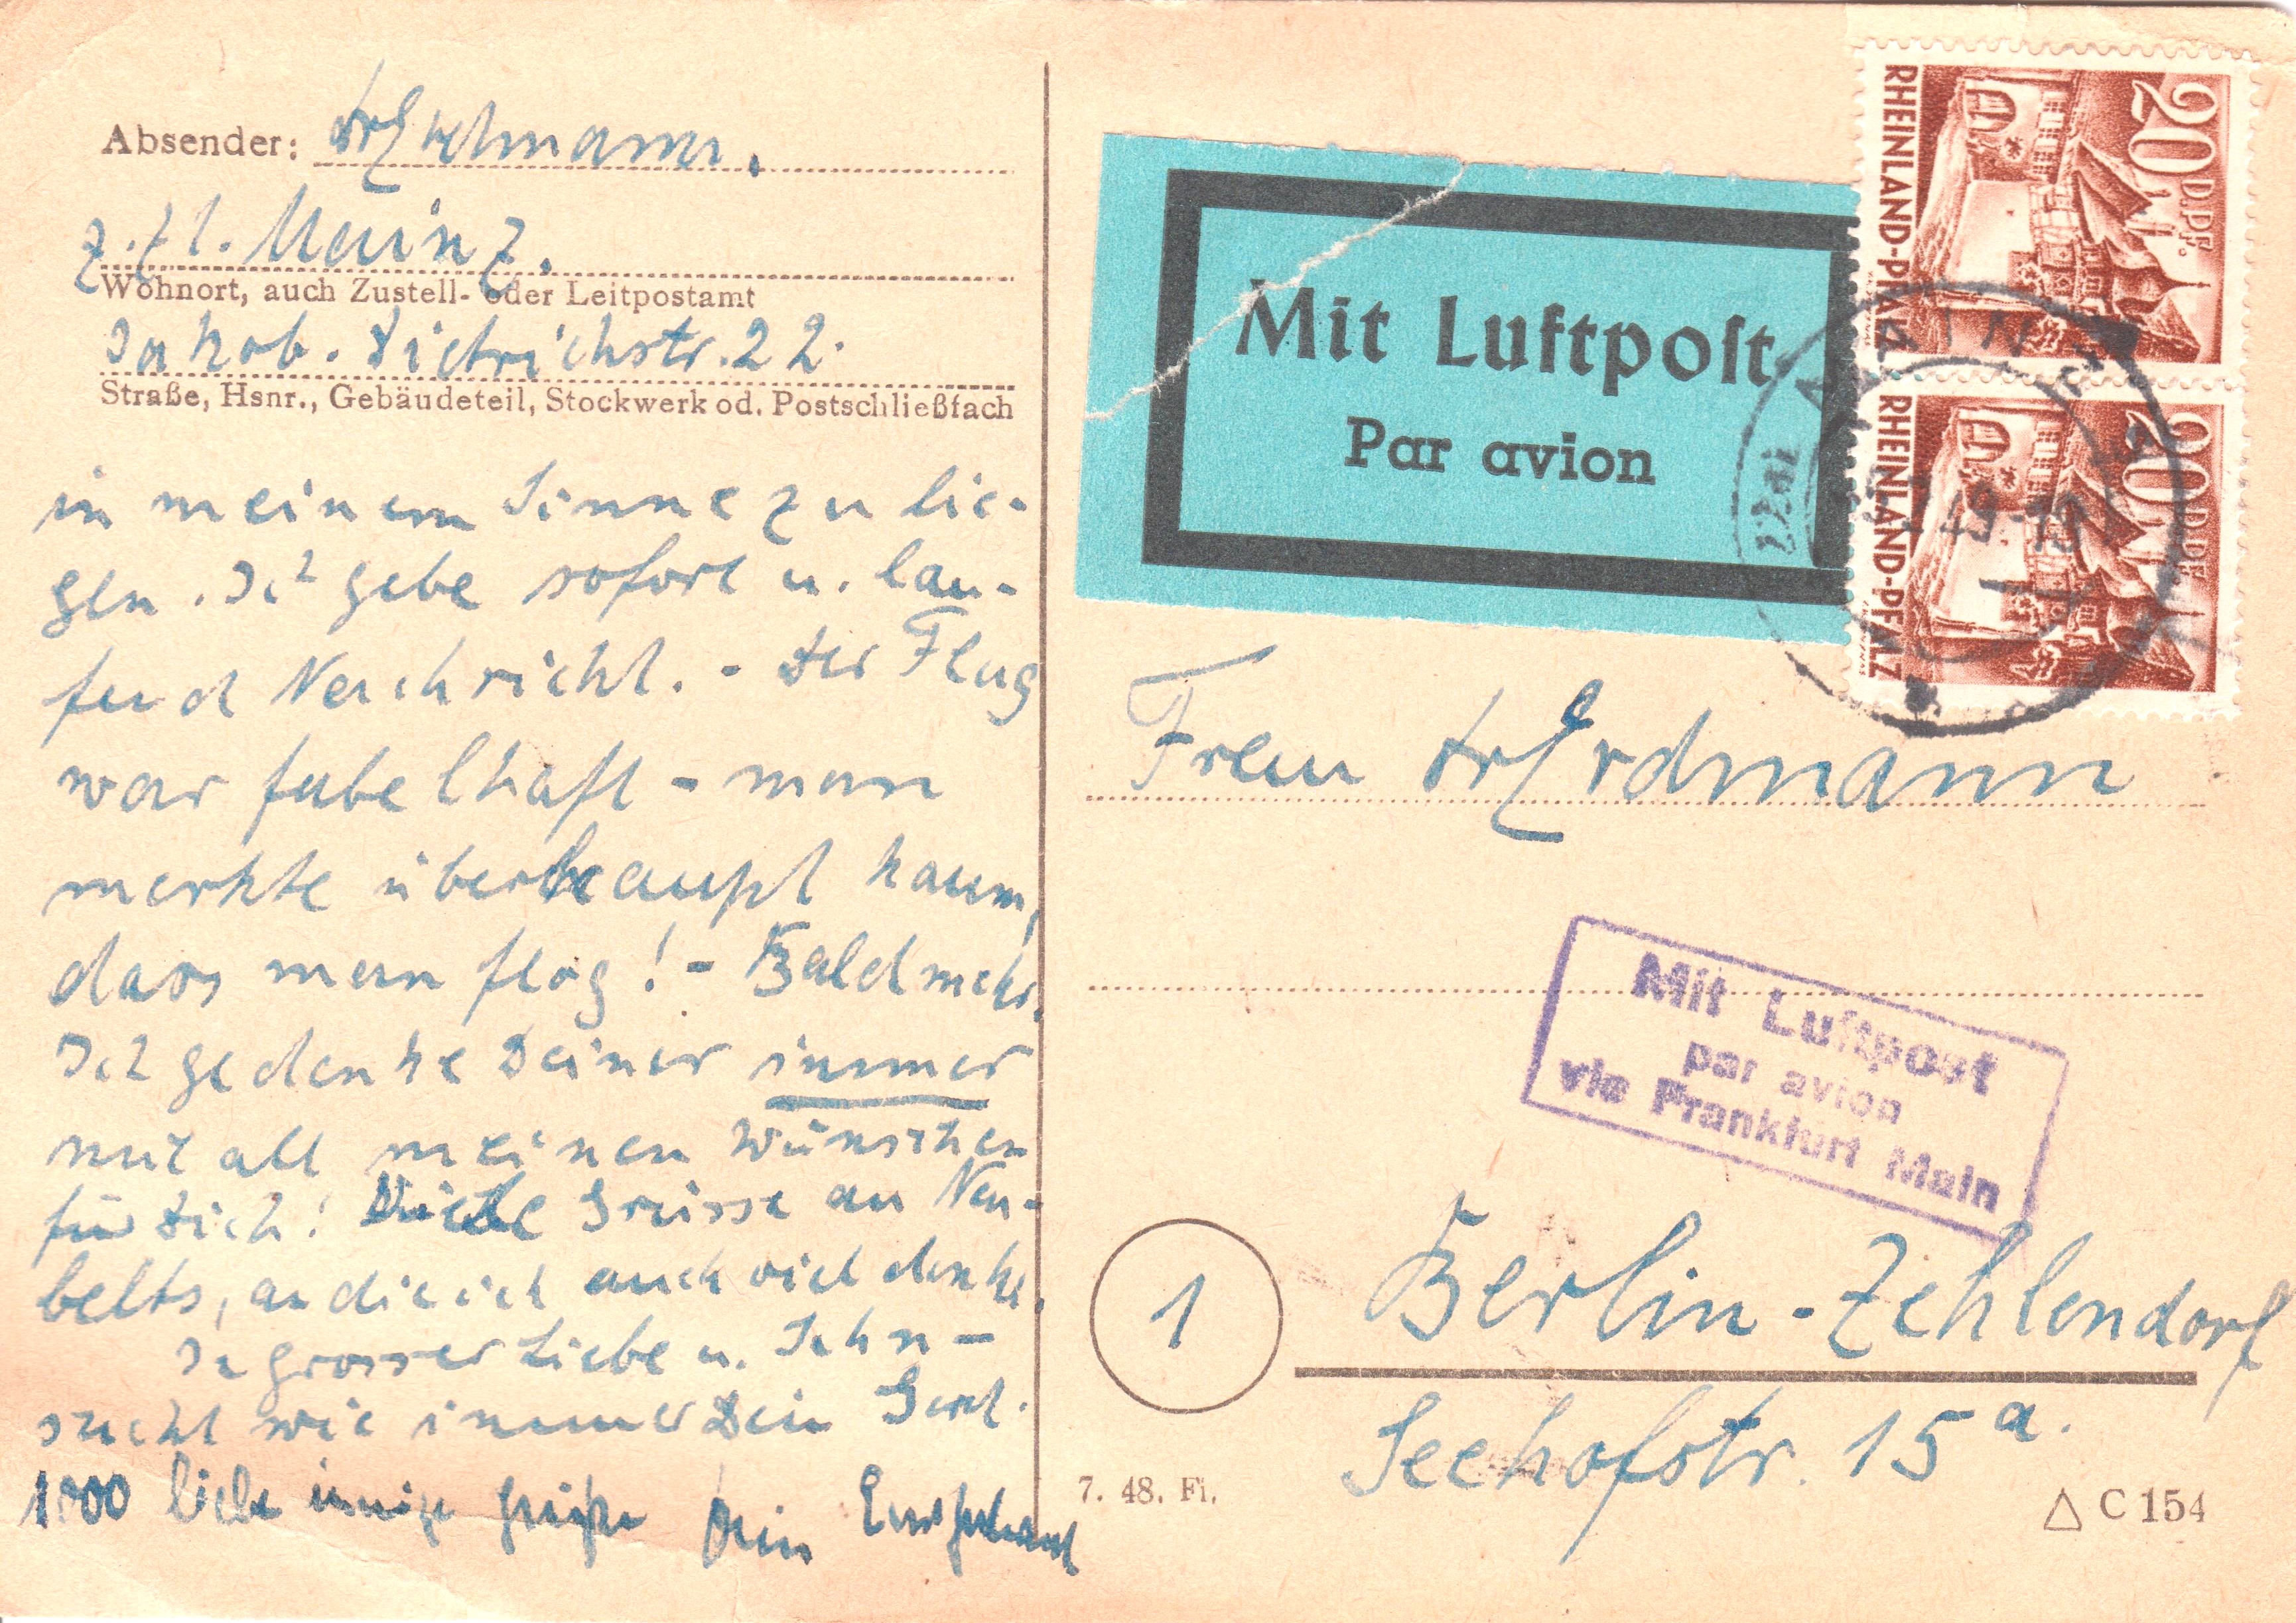 Absender: Dr Erdmann,
z. Zt. Mainz,
Wohnort, auch Zustell- oder Leitpostamt
Jakob-Dietrichstr. 22.
Straße, Hsnr., Gebäudeteil, Stockwerk od. Postschließfach
in meinem Sinne zu lie-
gen. Ich gebe sofort u. lau-
fend Nachricht. - Der Flug
war fabelhaft - man
merkte überhaupt kaum,
dass man flog! - Bald mehr.
Ich gedenke Deiner immer
mit all meinen Wünschen
für Dich! Viele Grüsse an Neu-
belts, an die ich auch viel denke.
In grosser Liebe u. Sehn-
sucht wie immer Dein Gerd.
1000 liebe innige Grüße Dein
Mit Luftpost
Par avion
20 D.PF.
RHEINLAND-PFALZ
20 D.PF.
RHEINLAND-PFALZ
MAINZ
49-19
Frau Dr Erdmann
Mit Luftpost
par avion
via Frankfurt Main
1
Berlin-Zehlendorf
Seehofstr. 15a.
7. 48. Fi.
△ C 154